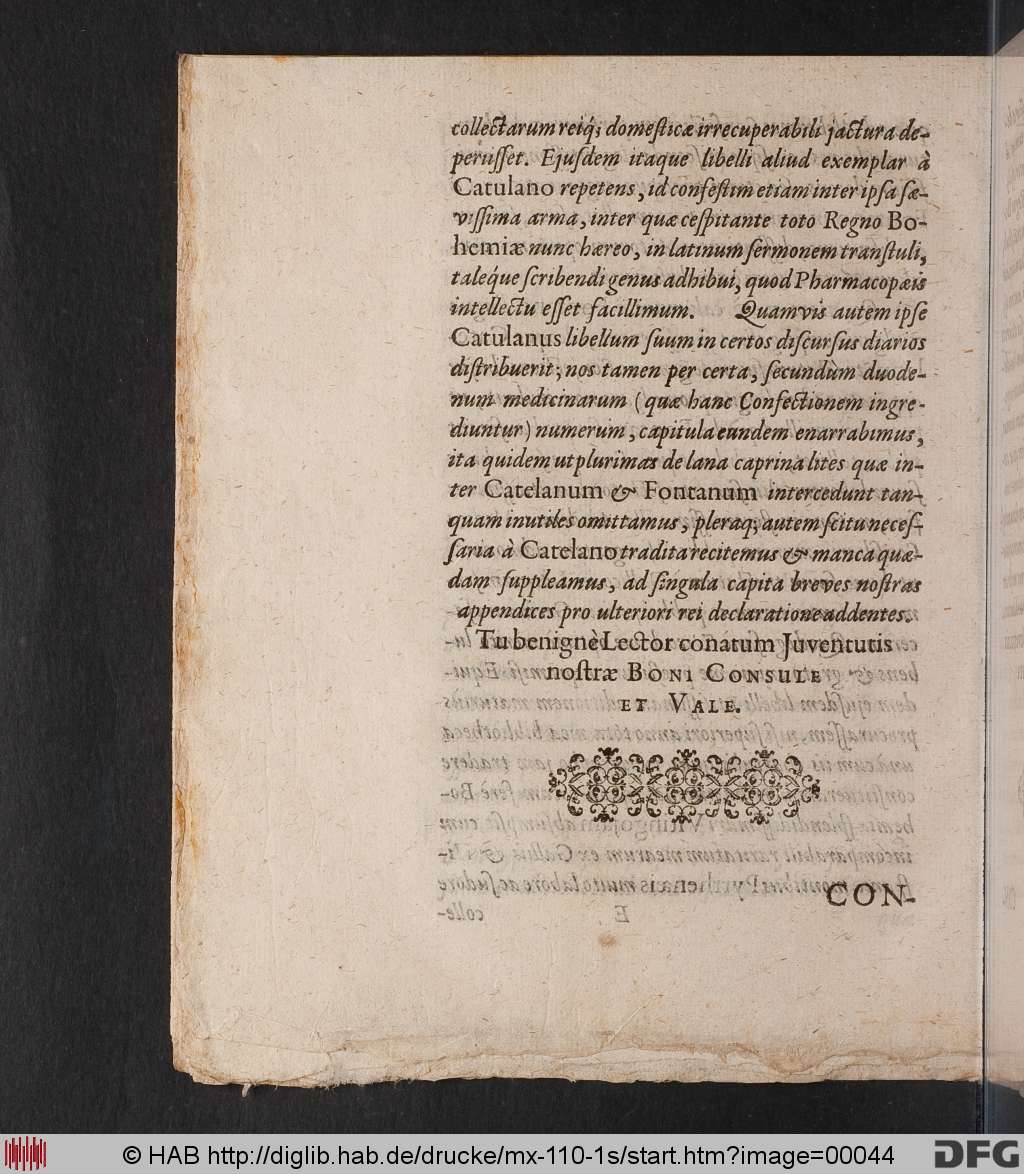 collectarum reiq́; domesticæ irrecuperabili jactura de-
periisset. Ejusdem itaque libelli aliud exemplar à
Catulano repetens, id confestim etiam inter ipsa sæ-
vissima arma, inter quæ cespitante toto Regno Bo-
hemiæ nunc hæreo, in latinum sermonem transtuli,
taleq́ue scribendi genus adhibui, quod Pharmacopæis
intellectu esset facillimum. Quamvis autem ipse
Catulanus libellum suum in certos discursus diarios
distribuerit; nos tamen per certa, secundùm duode-
num medicinarum (quæ hanc Confectionem ingre-
diuntur) numerum, capitula eundem enarrabimus,
ita quidem ut plurimas de lana caprina lites quæ in-
ter Catelanum & Fontanum intercedunt tan-
quam inutiles omittamus, pleraq; autem scitu neces-
saria à Catelano tradita recitemus & manca quæ-
dam suppleamus, ad singula capita breves nostras
appendices pro ulteriori rei declaratione addentes.
Tu benignè Lector conatum Juventutis
nostræ BONI CONSULE
ET VALE.
CON-
© HAB http://diglib.hab.de/drucke/mx-110-1s/start.htm?image=00044
DFG